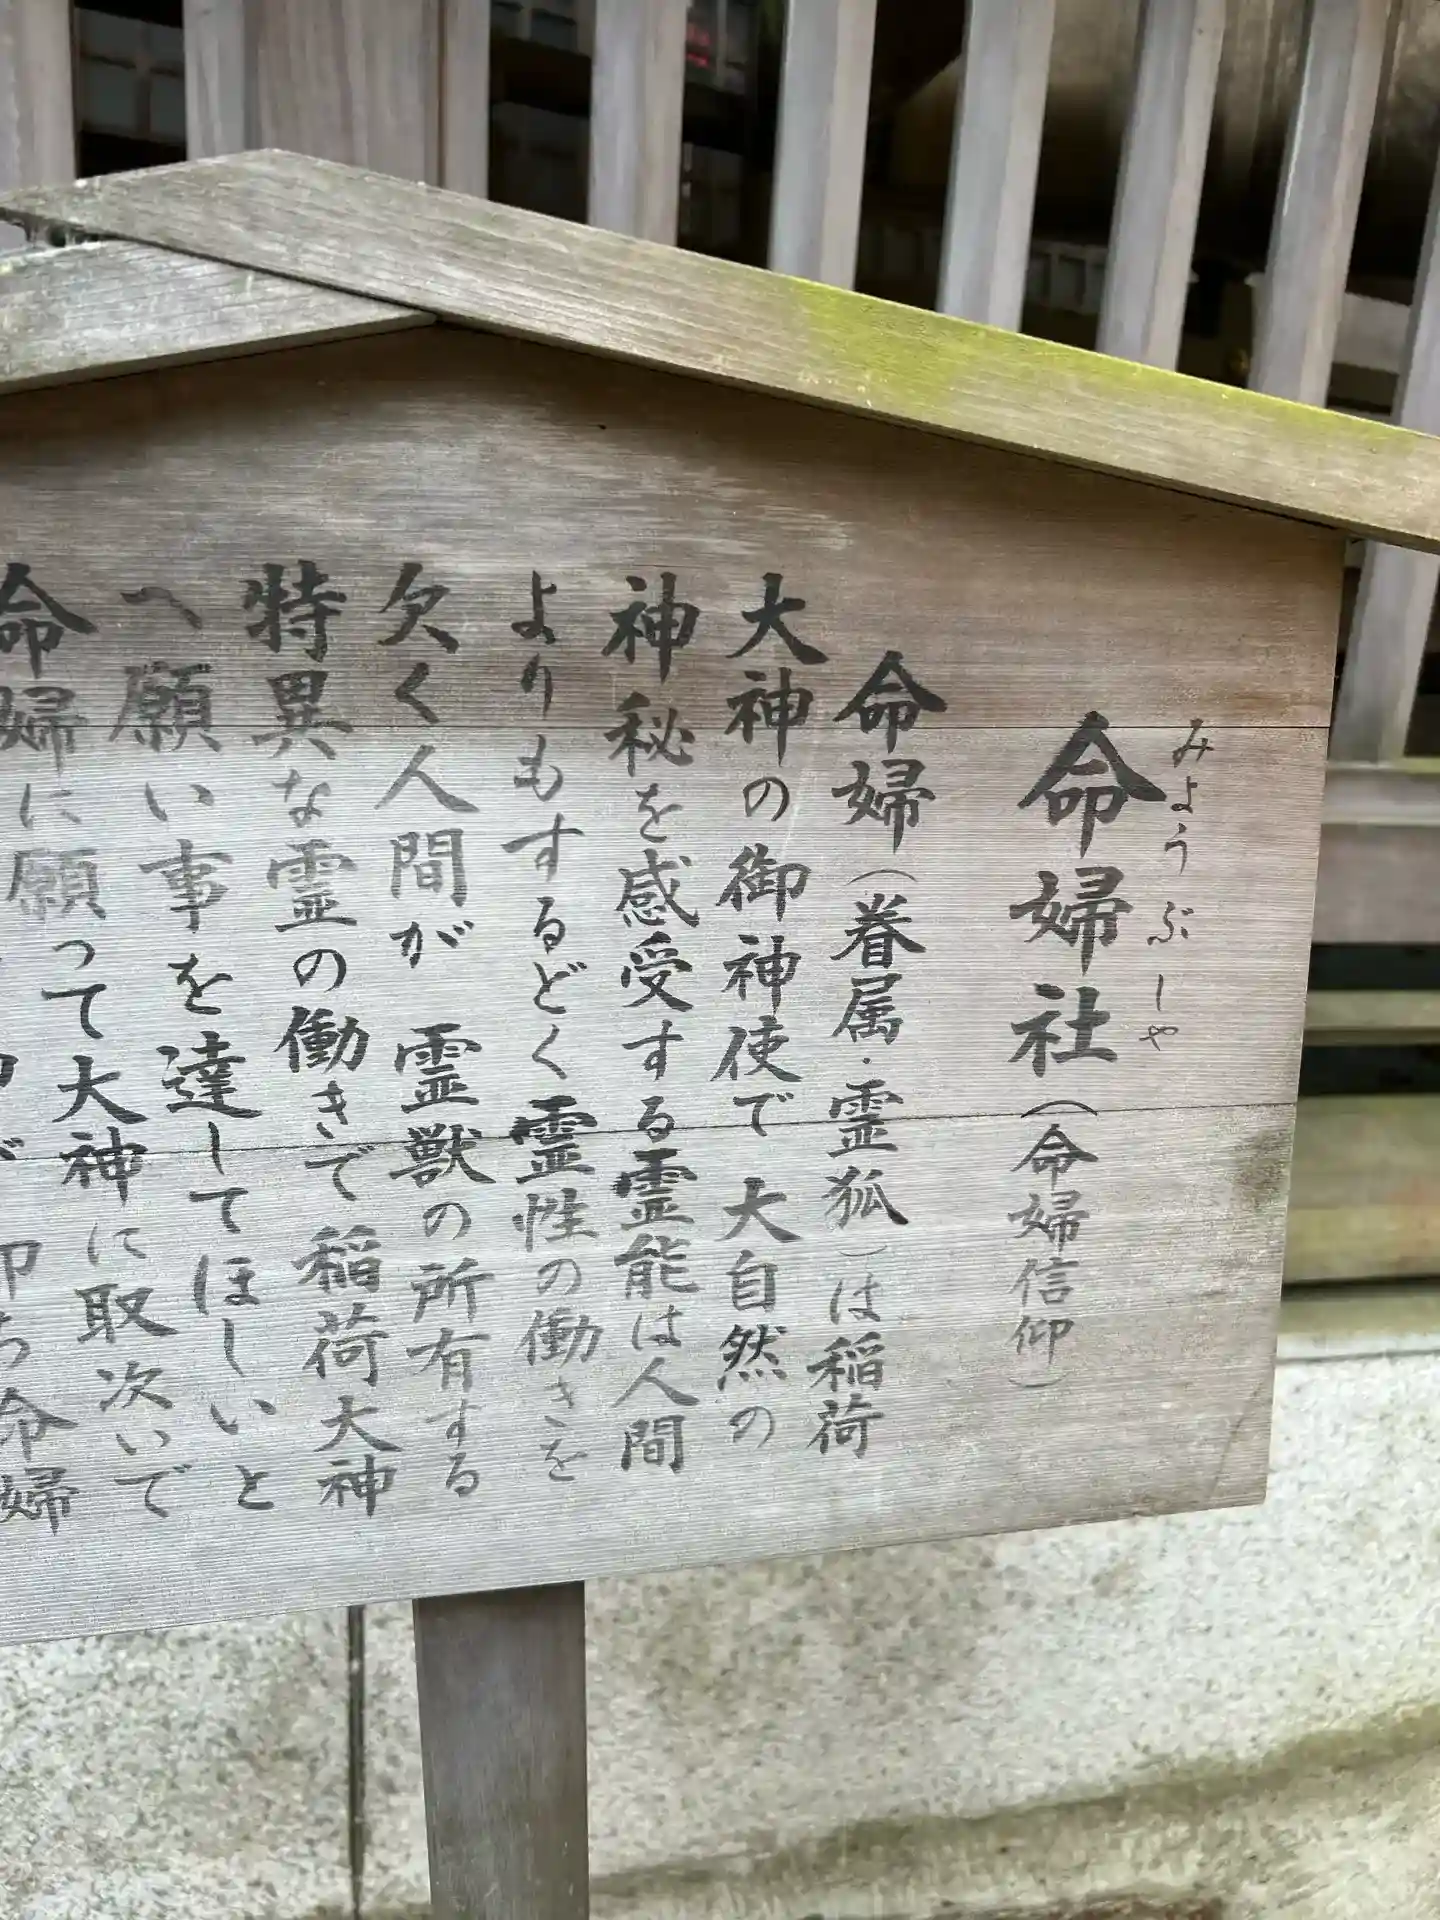 みようぶしや
命婦社(命婦信仰)
命婦(眷属・霊狐)は稲荷
大神の御神使で大自然の
神秘を感受する霊能は人間
よりもするどく霊性の働きを
欠く人間が 霊獣の所有する
特異な霊の働きで稲荷大神
へ願い事を達してほしいと
命婦に願って大神に取次いで
命婦